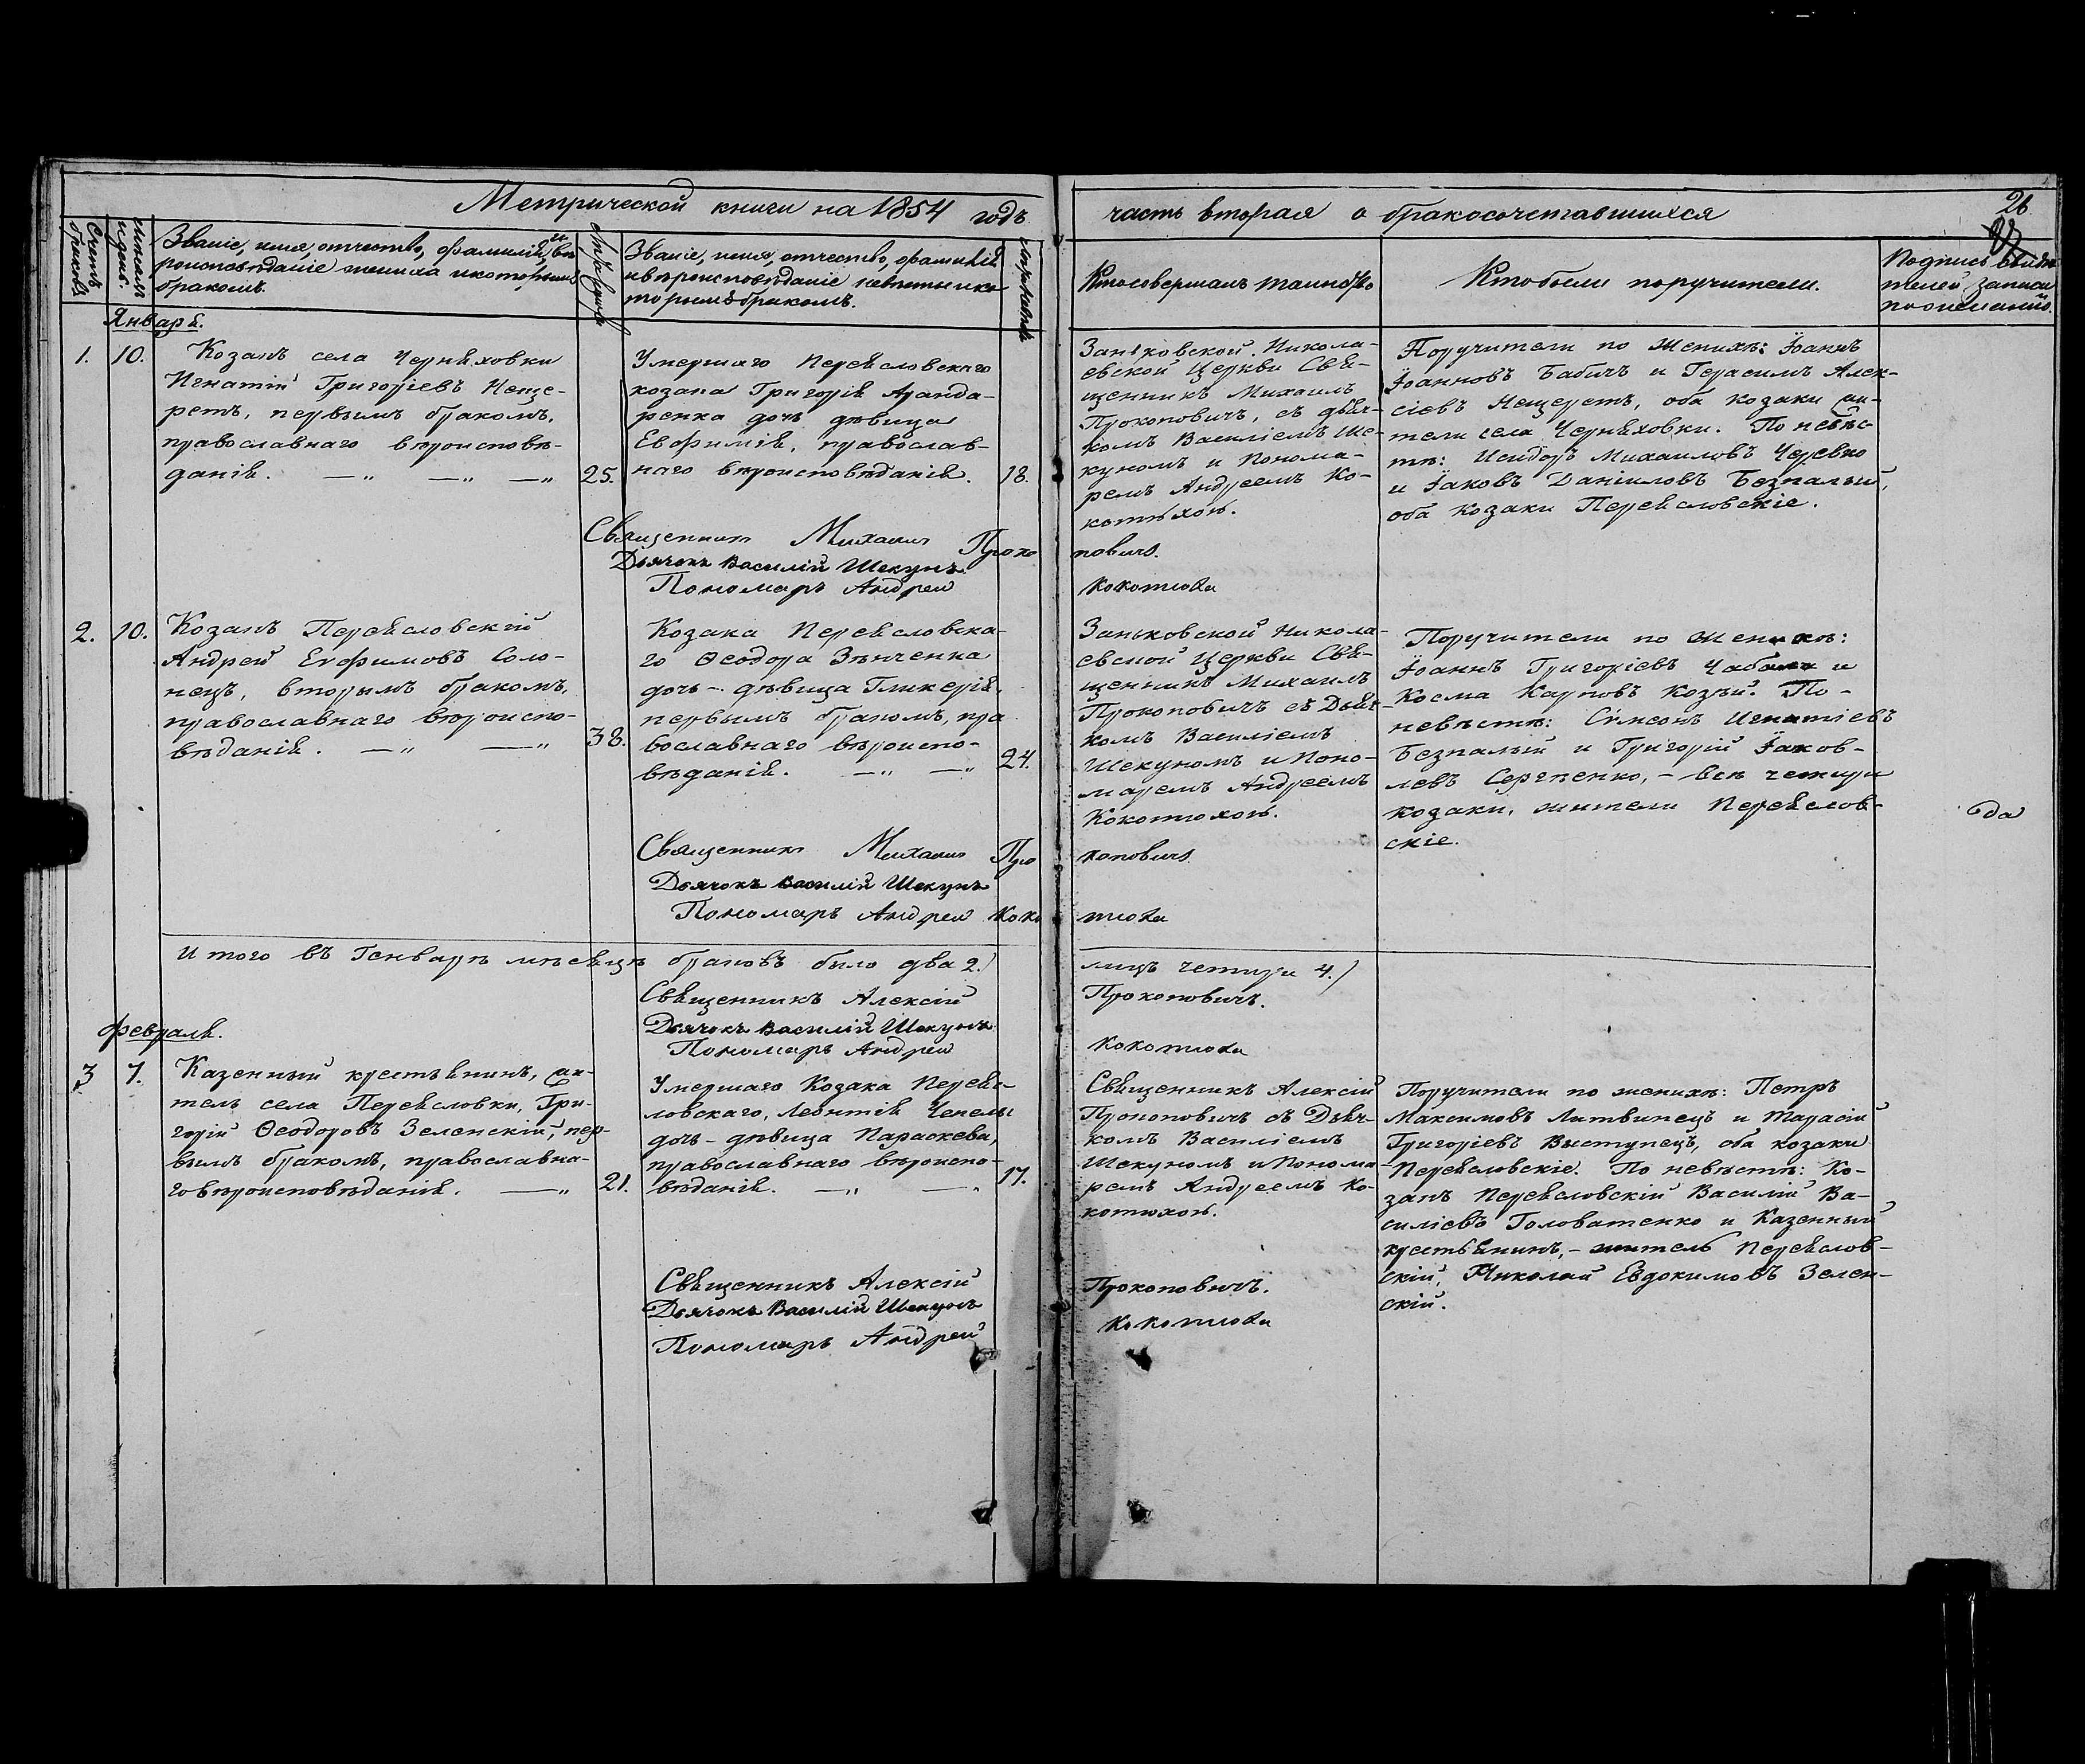 Метрической книги на 1854 годъ
часть вторая о бракосочетавшихся
26
Счетъ браковъ
и день.
Званіе, имя, отчество, фамилія, и вѣ-
роисповѣданіе жениха и которымъ
бракомъ.
Званіе, имя, отчество, фамилія
и вѣроисповѣданіе невѣсты и ко
торымъ бракомъ.
Кто совершалъ таинство
Кто были поручители.
Подпись свидѣ
телей записи
по желанію.
Январь.
1.
10.
Козакъ села Черняховки
Игнатій Григоріевъ Неще-
ретъ, первымъ бракомъ,
православнаго вѣроисповѣ-
данія. — „ — „ — „
25.
Умершаго Переясловскаго
козака Григорія Аранда-
ренка дочь дѣвица
Евфимія, православ-
наго вѣроисповѣданія.
18.
Заньковской Никола-
евской Церкви Свя-
щенникъ Михаилъ
Прокоповичъ, съ дьяч-
комъ Василіемъ Ше-
куномъ и Понома-
ремъ Андреемъ Ко-
котюхою.
Поручители по женихѣ: Іоаннъ
Іоанновъ Бабичъ и Герасимъ Алек-
сіевъ Нещеретъ, оба козаки жи-
тели села Черняховки. По невѣс-
тѣ: Исидоръ Михаиловъ Черевко
и Іаковъ Даніиловъ Безпалый,
оба козаки Переясловскіе.
Священникъ Михаилъ Проко
повичъ.
Дьячокъ Василій Шекунъ
Пономарь Андрей
Кокотюха
2.
10.
Козакъ Переясловскій
Андрей Евфимовъ Соло-
нецъ, вторымъ бракомъ,
православнаго вѣроиспо-
вѣданія. — „ — „
38.
Козака Переясловска-
го Ѳеодора Зѣнченка
дочь - дѣвица Гликерія,
первымъ бракомъ, пра
вославнаго вѣроиспо-
вѣданія. — „ — „
24.
Заньковской Никола-
евской Церкви Свя-
щенникъ Михаилъ
Прокоповичъ съ Дьяч-
комъ Василіемъ
Шекуномъ и Поно-
маремъ Андреемъ
Кокотюхою.
Поручители по женихѣ:
Іоаннъ Григоріевъ и
Косма Карповъ Козѣй. По-
невѣстѣ: Симеонъ Игнатіевъ
Безпалый и Григорій Іаков-
левъ Сергіенко, - всѣ четыри
козаки, жители Переяслов-
скіе.
да
Священникъ Михаилъ Про
коповичъ
Дьячокъ Василій Шекунъ
Пономарь Андрей Коко
тюха
Итого въ Генварѣ мѣсяцѣ браковъ было два 2.
лицъ четыри 4.)
Священникъ Алексій
Прокоповичъ.
Дьячокъ Василій Шекунъ
Пономарь Андрей
Кокотюха
Февраль.
3
7.
Казенный крестьянинъ, жи-
тель села Переясловки, Гри-
горій Ѳеодоровъ Зеленскій, пер-
вымъ бракомъ, православна-
го вѣроисповѣданія. — „
21.
Умершаго Козака Переяс-
ловскаго, Леонтія Чепелы
дочь - дѣвица Параскева,
православнаго вѣроиспо-
вѣданія. — „ — „
17.
Священникъ Алексій
Прокоповичъ съ Дьяч-
комъ Василіемъ
Шекуномъ и Понома
ремъ Андреемъ Ко-
котюхою.
Поручители по женихѣ: Петръ
Максимовъ Литвинецъ и Тарасій
Григоріевъ Выступецъ, оба козаки
Переясловскіе. По невѣстѣ: Ко-
закъ Переясловскій Василій Ва-
силіевъ Головатенко и Казенный
крестьянинъ, - житель Переяслов-
скій, Николай Евдокимовъ Зелен-
скій.
Священникъ Алексій
Прокоповичъ.
Дьячокъ Василій Шекунъ
Пономарь Андрей
Кокотюха